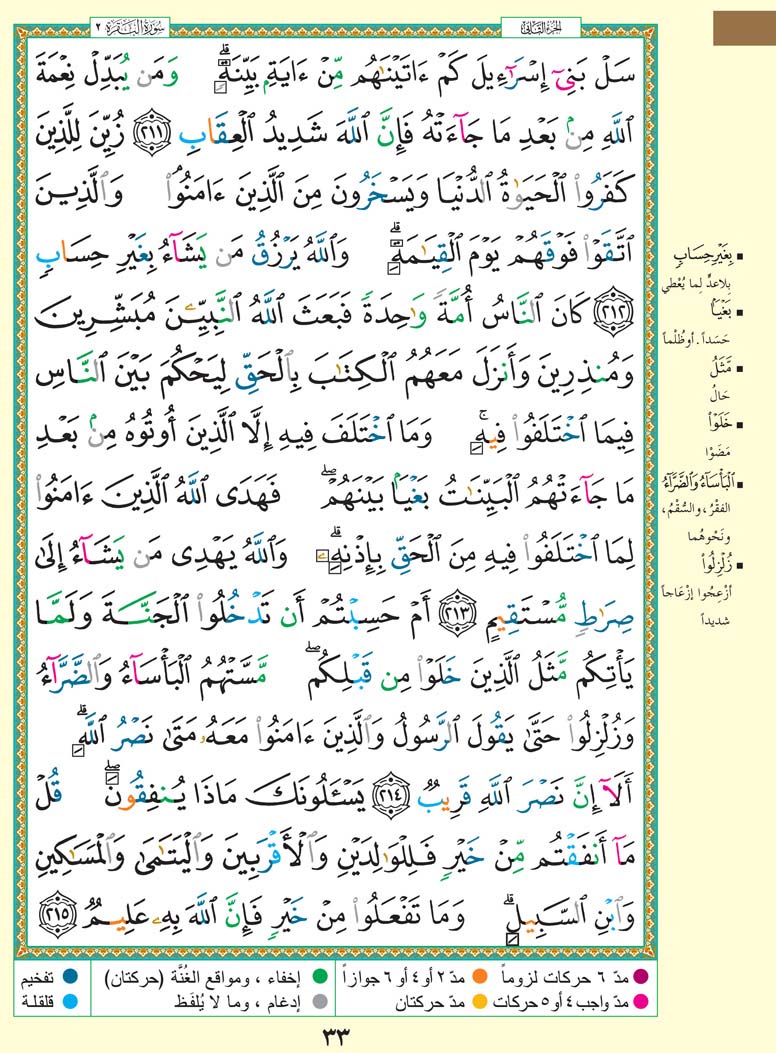 سُورَةُ البَقَرَة ٢
الجُزءُ الثَّانِي
سَلْ بَنِىٓ إِسْرَٰٓءِيلَ كَمْ ءَاتَيْنَٰهُم مِّنْ ءَايَةٍۭ بَيِّنَةٍۗ وَمَن يُبَدِّلْ نِعْمَةَ
ٱللَّهِ مِنۢ بَعْدِ مَا جَآءَتْهُ فَإِنَّ ٱللَّهَ شَدِيدُ ٱلْعِقَابِ ٢١١ زُيِّنَ لِلَّذِينَ
كَفَرُوا۟ ٱلْحَيَوٰةُ ٱلدُّنْيَا وَيَسْخَرُونَ مِنَ ٱلَّذِينَ ءَامَنُوا۟ۘ وَٱلَّذِينَ
ٱتَّقَوْا۟ فَوْقَهُمْ يَوْمَ ٱلْقِيَٰمَةِۗ وَٱللَّهُ يَرْزُقُ مَن يَشَآءُ بِغَيْرِ حِسَابٍ
٢١٢ كَانَ ٱلنَّاسُ أُمَّةً وَٰحِدَةً فَبَعَثَ ٱللَّهُ ٱلنَّبِيِّۦنَ مُبَشِّرِينَ
وَمُنذِرِينَ وَأَنزَلَ مَعَهُمُ ٱلْكِتَٰبَ بِٱلْحَقِّ لِيَحْكُمَ بَيْنَ ٱلنَّاسِ
فِيمَا ٱخْتَلَفُوا۟ فِيهِۚ وَمَا ٱخْتَلَفَ فِيهِ إِلَّا ٱلَّذِينَ أُوتُوهُ مِنۢ بَعْدِ
مَا جَآءَتْهُمُ ٱلْبَيِّنَٰتُ بَغْيًۢا بَيْنَهُمْۖ فَهَدَى ٱللَّهُ ٱلَّذِينَ ءَامَنُوا۟
لِمَا ٱخْتَلَفُوا۟ فِيهِ مِنَ ٱلْحَقِّ بِإِذْنِهِۦۗ وَٱللَّهُ يَهْدِى مَن يَشَآءُ إِلَىٰ
صِرَٰطٍ مُّسْتَقِيمٍ ٢١٣ أَمْ حَسِبْتُمْ أَن تَدْخُلُوا۟ ٱلْجَنَّةَ وَلَمَّا
يَأْتِكُم مَّثَلُ ٱلَّذِينَ خَلَوْا۟ مِن قَبْلِكُمۖ مَّسَّتْهُمُ ٱلْبَأْسَآءُ وَٱلضَّرَّآءُ
وَزُلْزِلُوا۟ حَتَّىٰ يَقُولَ ٱلرَّسُولُ وَٱلَّذِينَ ءَامَنُوا۟ مَعَهُۥ مَتَىٰ نَصْرُ ٱللَّهِۗ
أَلَآ إِنَّ نَصْرَ ٱللَّهِ قَرِيبٌ ٢١٤ يَسْـَٔلُونَكَ مَاذَا يُنفِقُونَۖ قُلْ
مَآ أَنفَقْتُم مِّنْ خَيْرٍ فَلِلْوَٰلِدَيْنِ وَٱلْأَقْرَبِينَ وَٱلْيَتَٰمَىٰ وَٱلْمَسَٰكِينِ
وَٱبْنِ ٱلسَّبِيلِۗ وَمَا تَفْعَلُوا۟ مِنْ خَيْرٍ فَإِنَّ ٱللَّهَ بِهِۦ عَلِيمٌ ٢١٥
بِغَيْرِ حِسَابٍ
بِلا عَدٍّ لِما يُعْطي
بَغْيًۢا
حَسَداً. أو ظُلْماً
مَّثَلُ
حَالُ
خَلَوْا۟
مَضَوْا
ٱلْبَأْسَآءُ وَٱلضَّرَّآءُ
الفَقْرُ، والسُّقْمُ،
ونَحْوُهُما
زُلْزِلُوا۟
أُزْعِجُوا إزْعَاجاً
شديداً
مدّ ٦ حركات لزوماً
مدّ ٢ أو ٤ أو ٦ جوازاً
إخفاء ، ومواقع الغُنَّة (حركتان)
تفخيم
مدّ واجب ٤ أو ٥ حركات
مدّ حركتان
إدغام ، وما لا يُلفَظ
قلقلة
٣٣